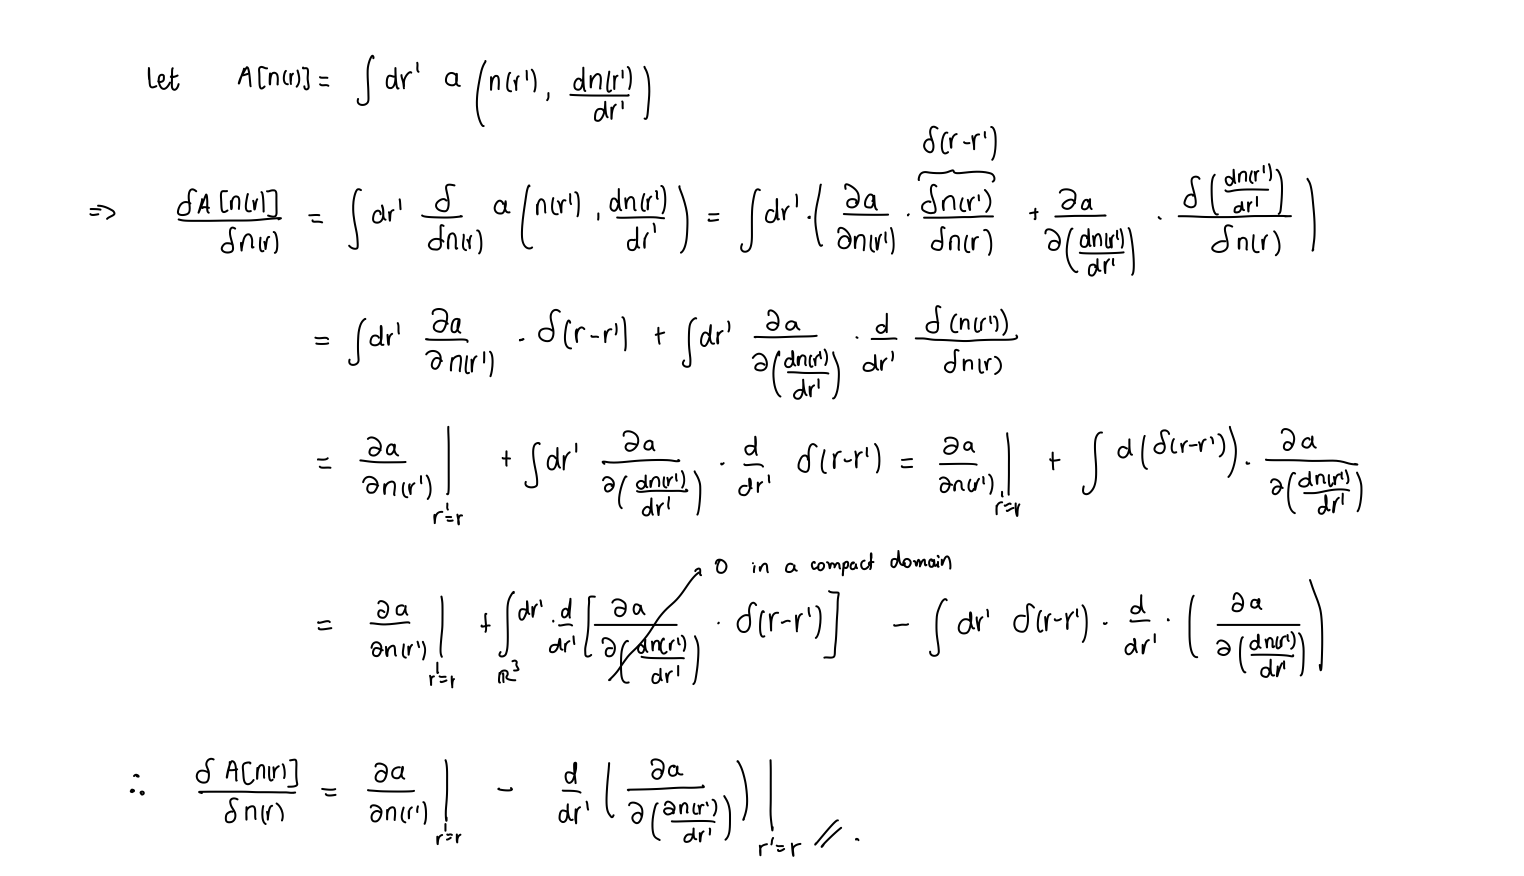 Let A[n(r)] = ∫ dr' a (n(r'), dn(r')/dr')
δ(r-r')
⇒ δA[n(r)]/δn(r) = ∫ dr' δ/δn(r) a (n(r'), dn(r')/dr') = ∫ dr' · (∂a/∂n(r') · δn(r')/δn(r) + ∂a/∂(dn(r')/dr') · δ(dn(r')/dr')/δn(r))
= ∫ dr' ∂a/∂n(r') · δ(r-r') + ∫ dr' ∂a/∂(dn(r')/dr') · d/dr' δ(n(r'))/δn(r)
= ∂a/∂n(r') |r'=r + ∫ dr' ∂a/∂(dn(r')/dr') · d/dr' δ(r-r') = ∂a/∂n(r') |r'=r + ∫ d(δ(r-r')) · ∂a/∂(dn(r')/dr')
0 in a compact domain
= ∂a/∂n(r') |r'=r + ∫ℝ³ dr' · d/dr' [∂a/∂(dn(r')/dr') · δ(r-r')] - ∫ dr' δ(r-r') · d/dr' · (∂a/∂(dn(r')/dr'))
∴ δA[n(r)]/δn(r) = ∂a/∂n(r') |r'=r - d/dr' (∂a/∂(∂n(r')/dr')) |r'=r // .